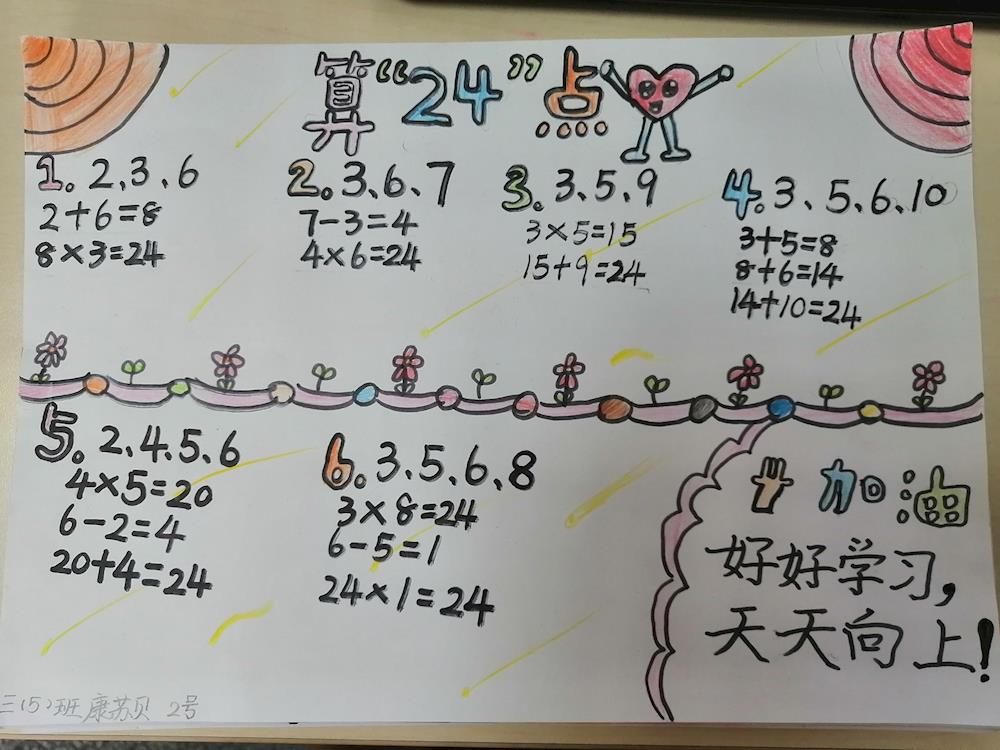 算“24”点
1. 2、3、6
2+6=8
8×3=24
2. 3、6、7
7-3=4
4×6=24
3. 3、5、9
3×5=15
15+9=24
4. 3、5、6、10
3+5=8
8+6=14
14+10=24
5. 2、4、5、6
4×5=20
6-2=4
20+4=24
6. 3、5、6、8
3×8=24
6-5=1
24×1=24
加油
好好学习,
天天向上!
三(5)班 康苏贝 2号